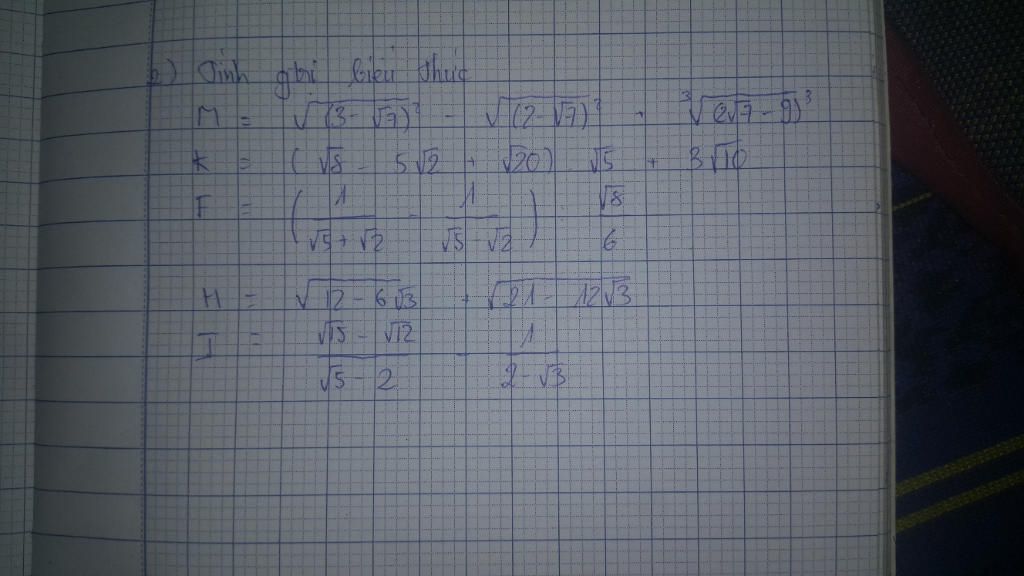 b) Tính gtrị biểu thức
M = √(3-√7)² - √(2-√7)² + ³√(2√7-9)³
K = (√8 - 5√2 + √20) √5 + 3√10
F = (1/(√5+√2) - 1/(√5-√2)) . √8/6
H = √12-6√3 + √21-12√3
I = (√15-√12)/(√5-2) - 1/(2-√3)